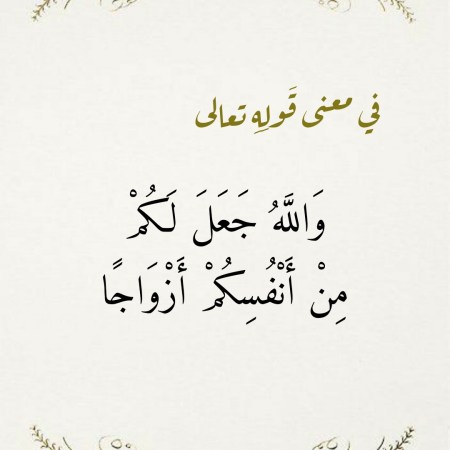 في معنى قَولِهِ تعالى
وَاللَّهُ جَعَلَ لَكُمْ
مِنْ أَنْفُسِكُمْ أَزْوَاجًا